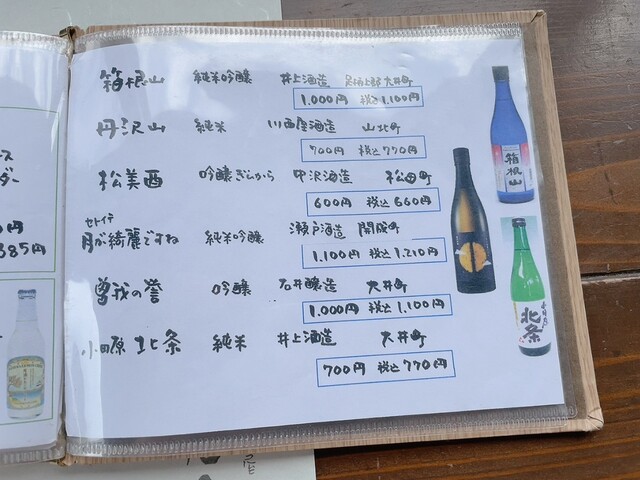 箱根山 純米吟醸 井上酒造 足柄上郡大井町
1,000円 税込1,100円
丹沢山 純米 川西屋酒造 山北町
700円 税込770円
松美酉 吟醸ぎんから 中沢酒造 松田町
600円 税込660円
セトイチ
月が綺麗ですね 純米吟醸 瀬戸酒造 開成町
1,100円 税込1,210円
曽我の誉 吟醸 石井醸造 大井町
1,000円 税込1,100円
小田原 北条 純米 井上酒造 大井町
700円 税込770円
箱根山
北条
ース
ダー
385円